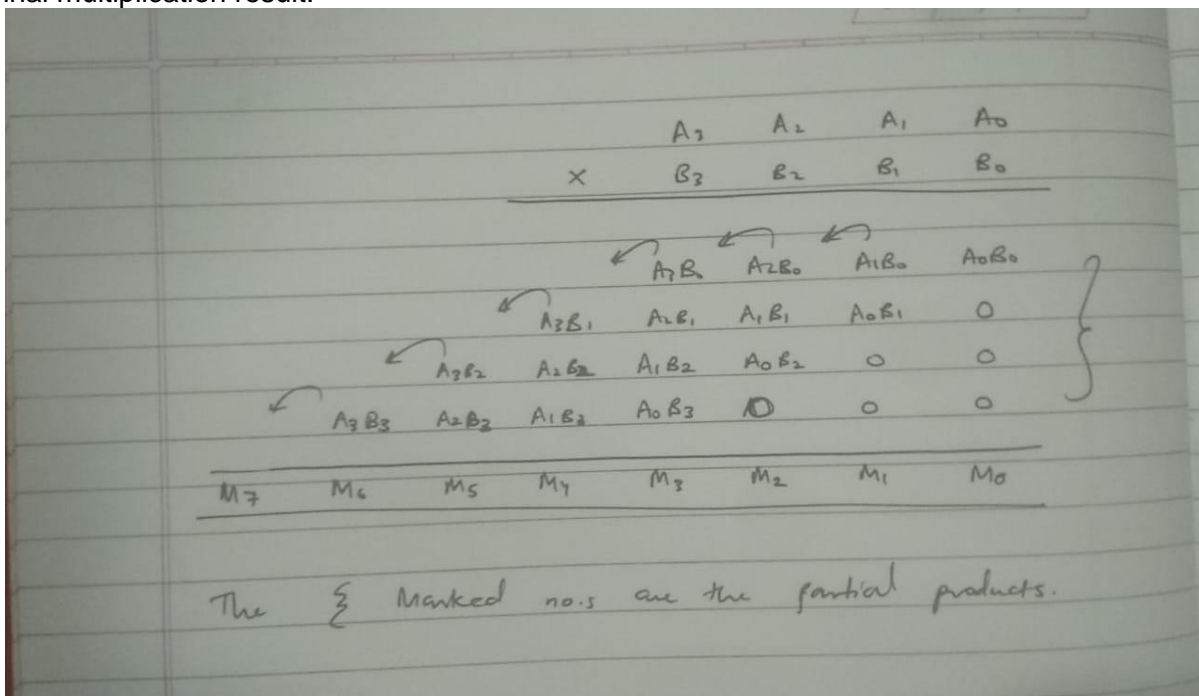 inal multiplication result.
A₃ A₂ A₁ A₀
× B₃ B₂ B₁ B₀
A₃B₀ A₂B₀ A₁B₀ A₀B₀
A₃B₁ A₂B₁ A₁B₁ A₀B₁ 0
A₃B₂ A₂B₂ A₁B₂ A₀B₂ 0 0
A₃B₃ A₂B₃ A₁B₃ A₀B₃ 0 0 0
M₇ M₆ M₅ M₄ M₃ M₂ M₁ M₀
The { Marked no.s are the partial products.